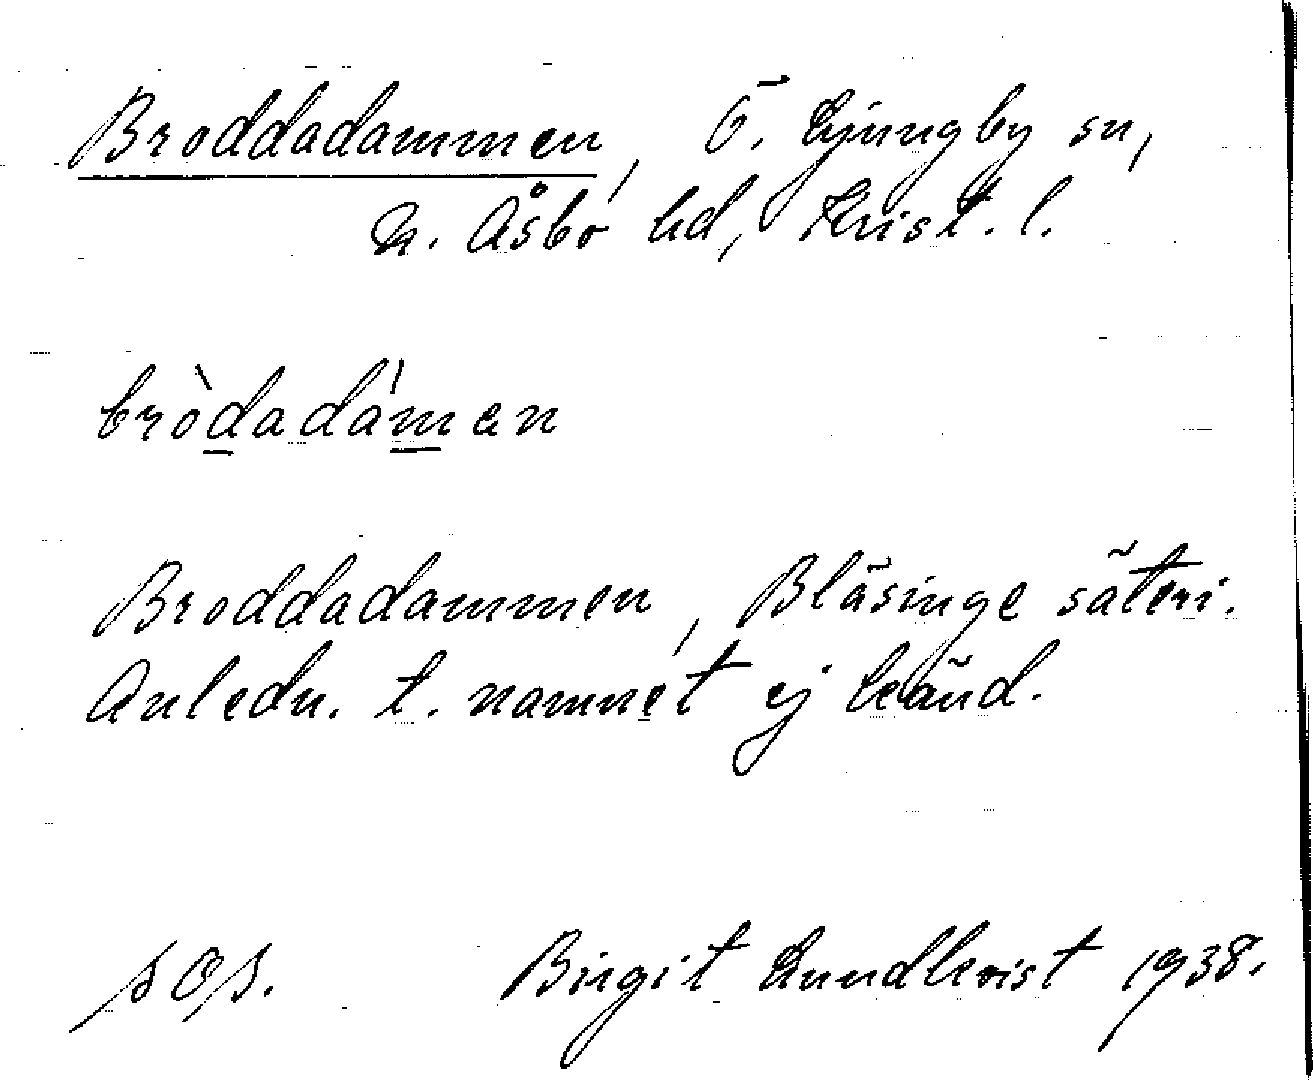 Broddadammen, Ö. Ljungby sn,
N. Åsbo hd, Krist. l.
bròdadámen
Broddadammen, Bläsinge säteri.
Anledn. t. namnet ej känd.
SOS. Birgit Lundkvist 1938.